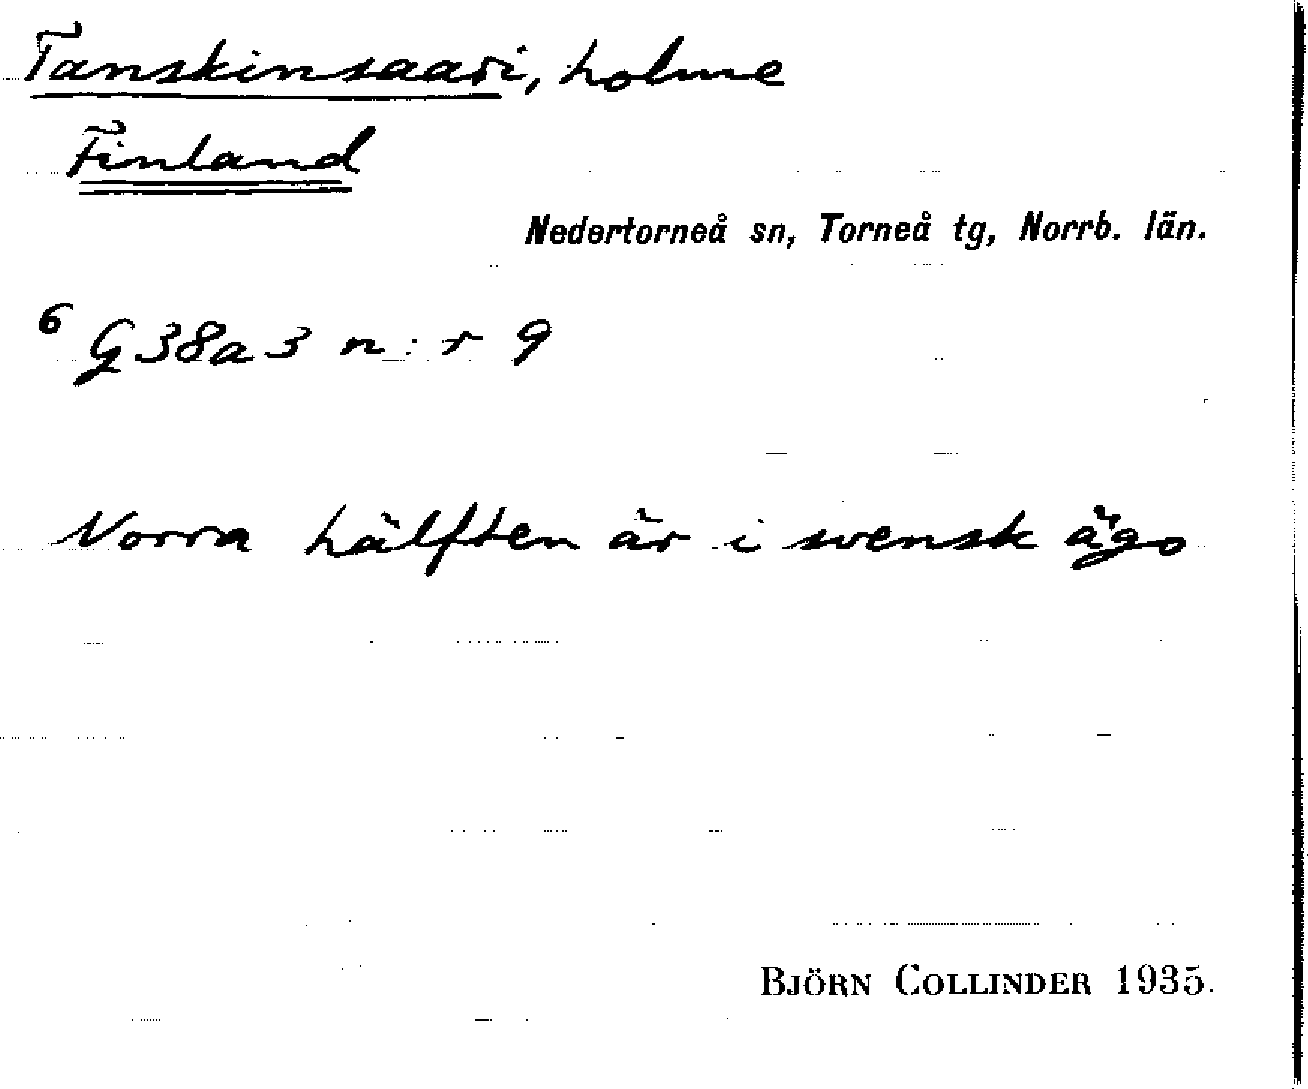 Tanskinsaari, holme
Finland
Nedertorneå sn, Torneå tg, Norrb. län.
6 G38a3 n:r 9
Norra hälften är i svensk ägo
BJÖRN COLLINDER 1935.